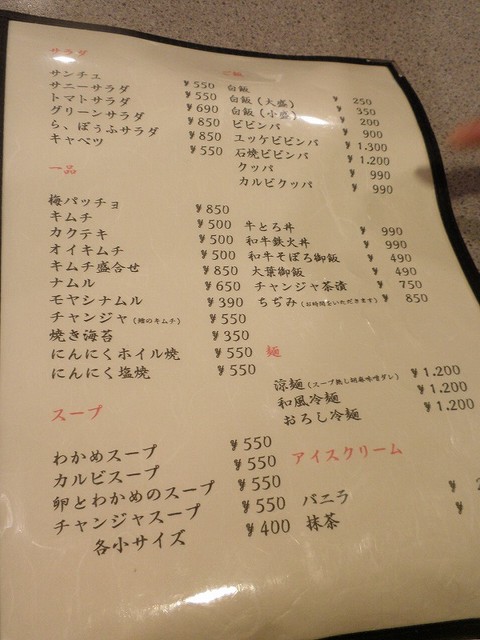 サラダ
サンチュ ¥550
サニーサラダ ¥550
トマトサラダ ¥690
グリーンサラダ ¥850
ら、ぽうふサラダ ¥850
キャベツ ¥550
一品
梅パッチョ ¥850
キムチ ¥500
カクテキ ¥500
オイキムチ ¥500
キムチ盛合せ ¥850
ナムル ¥650
モヤシナムル ¥390
チャンジャ(鱈のキムチ) ¥550
焼き海苔 ¥350
にんにくホイル焼 ¥550
にんにく塩焼 ¥550
スープ
わかめスープ ¥550
カルビスープ ¥550
卵とわかめのスープ ¥550
チャンジャスープ ¥550
各小サイズ ¥400
ご飯
白飯 ¥250
白飯(大盛) ¥350
白飯(小盛) ¥200
ビビンバ ¥900
ユッケビビンバ ¥1.300
石焼ビビンバ ¥1.200
クッパ ¥990
カルビクッパ ¥990
牛とろ丼 ¥990
和牛鉄火丼 ¥990
和牛そぼろ御飯 ¥490
大葉御飯 ¥490
チャンジャ茶漬 ¥750
ちぢみ(お時間をいただきます) ¥850
麺
涼麺(スープ無し胡麻味噌ダレ) ¥1.200
和風冷麺 ¥1.200
おろし冷麺 ¥1.200
アイスクリーム
バニラ ¥
抹茶 ¥